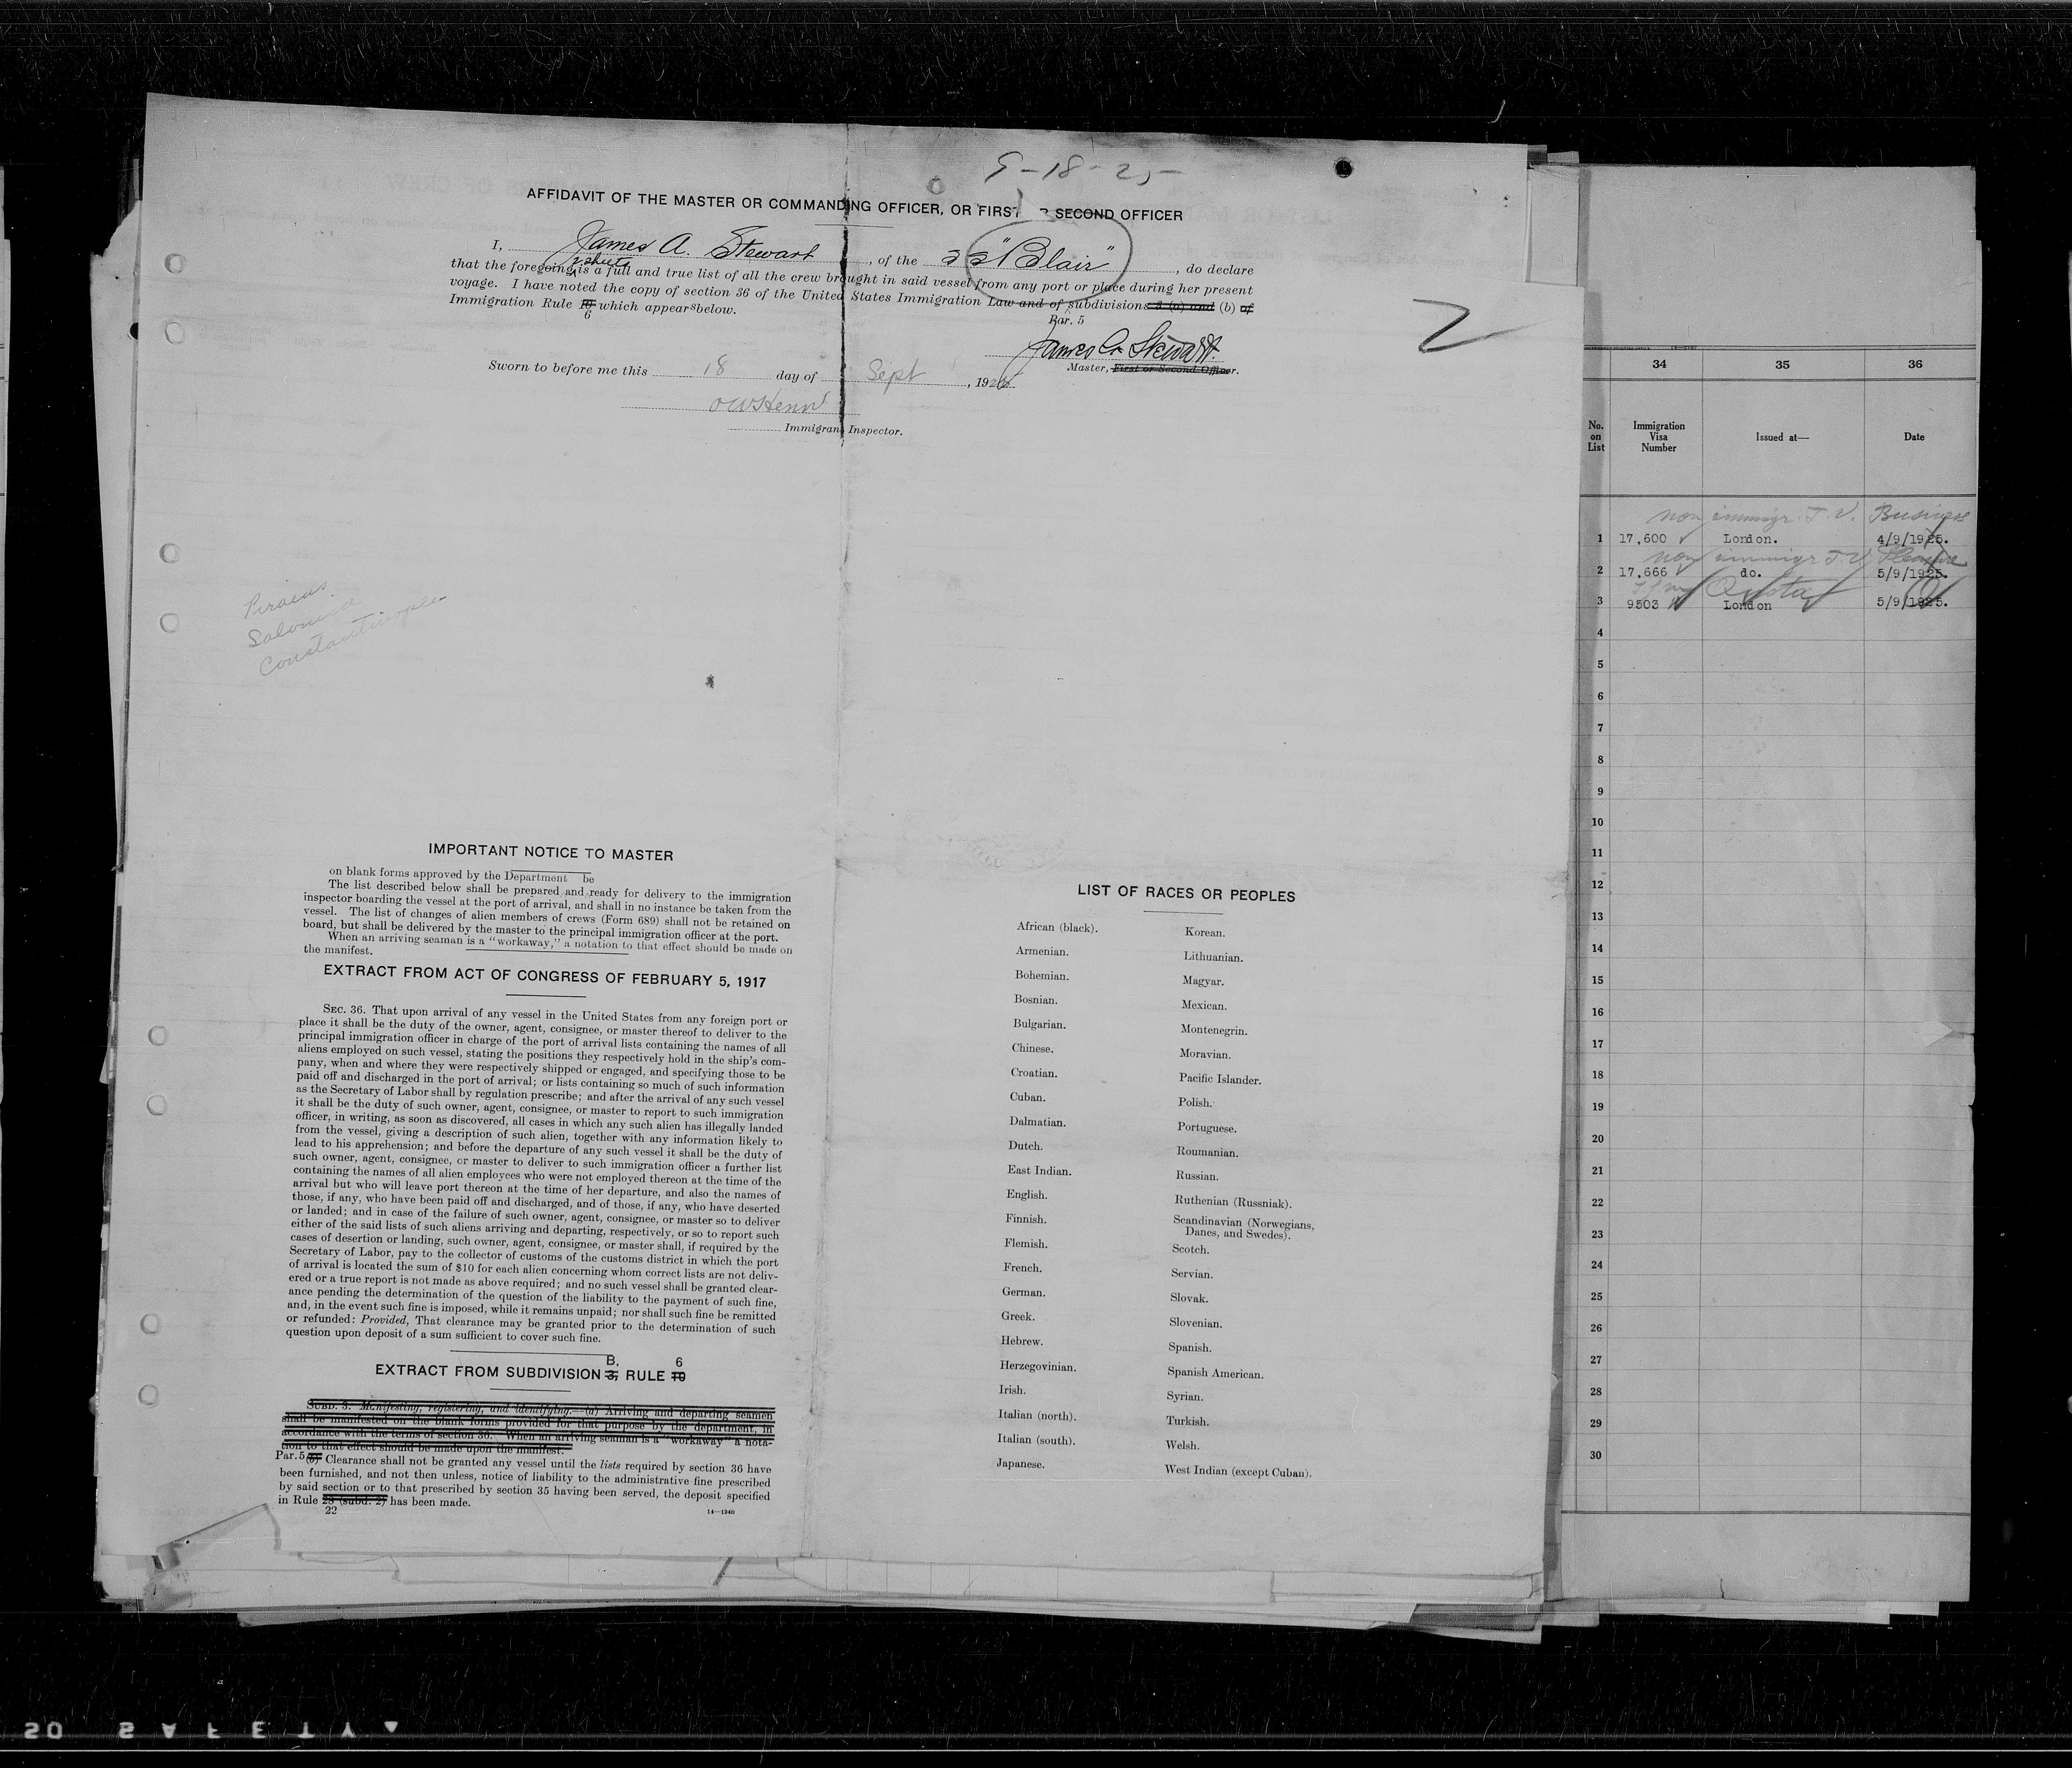 9-18-25
AFFIDAVIT OF THE MASTER OR COMMANDING OFFICER, OR FIRST OR SECOND OFFICER
I, James A. Stewart, of the SS "Blair", do declare
2 sheets
that the foregoing is a full and true list of all the crew brought in said vessel from any port or place during her present
voyage. I have noted the copy of section 36 of the United States Immigration Law and of subdivisions 3 (a) and (b) of
Immigration Rule 10 which appears below.
6
Par. 5
James A. Stewart.
Master, First or Second Officer.
Sworn to before me this 18 day of Sept, 192
Immigrant Inspector.
2
Piraeus
Salonica
Constantinople
IMPORTANT NOTICE TO MASTER
on blank forms approved by the Department be
The list described below shall be prepared and ready for delivery to the immigration
inspector boarding the vessel at the port of arrival, and shall in no instance be taken from the
vessel. The list of changes of alien members of crews (Form 689) shall not be retained on
board, but shall be delivered by the master to the principal immigration officer at the port.
When an arriving seaman is a "workaway," a notation to that effect should be made on
the manifest.
EXTRACT FROM ACT OF CONGRESS OF FEBRUARY 5, 1917
SEC. 36. That upon arrival of any vessel in the United States from any foreign port or
place it shall be the duty of the owner, agent, consignee, or master thereof to deliver to the
principal immigration officer in charge of the port of arrival lists containing the names of all
aliens employed on such vessel, stating the positions they respectively hold in the ship's com-
pany, when and where they were respectively shipped or engaged, and specifying those to be
paid off and discharged in the port of arrival; or lists containing so much of such information
as the Secretary of Labor shall by regulation prescribe; and after the arrival of any such vessel
it shall be the duty of such owner, agent, consignee, or master to report to such immigration
officer, in writing, as soon as discovered, all cases in which any such alien has illegally landed
from the vessel, giving a description of such alien, together with any information likely to
lead to his apprehension; and before the departure of any such vessel it shall be the duty of
such owner, agent, consignee, or master to deliver to such immigration officer a further list
containing the names of all alien employees who were not employed thereon at the time of the
arrival but who will leave port thereon at the time of her departure, and also the names of
those, if any, who have been paid off and discharged, and of those, if any, who have deserted
or landed; and in case of the failure of such owner, agent, consignee, or master so to deliver
either of the said lists of such aliens arriving and departing, respectively, or so to report such
cases of desertion or landing, such owner, agent, consignee, or master shall, if required by the
Secretary of Labor, pay to the collector of customs of the customs district in which the port
of arrival is located the sum of $10 for each alien concerning whom correct lists are not deliv-
ered or a true report is not made as above required; and no such vessel shall be granted clear-
ance pending the determination of the question of the liability to the payment of such fine,
and, in the event such fine is imposed, while it remains unpaid; nor shall such fine be remitted
or refunded: Provided, That clearance may be granted prior to the determination of such
question upon deposit of a sum sufficient to cover such fine.
B. 6
EXTRACT FROM SUBDIVISION 3, RULE 10
SUBD. 3. Manifesting, registering, and identifying.—(a) Arriving and departing seamen
shall be manifested on the blank forms provided for that purpose by the department, in
accordance with the terms of section 36. When an arriving seaman is a "workaway" a nota-
tion to that effect should be made upon the manifest.
Par. 5 (b) Clearance shall not be granted any vessel until the lists required by section 36 have
been furnished, and not then unless, notice of liability to the administrative fine prescribed
by said section or to that prescribed by section 35 having been served, the deposit specified
in Rule 28 (subd. 2) has been made.
22
14—1240
LIST OF RACES OR PEOPLES
African (black).
Armenian.
Bohemian.
Bosnian.
Bulgarian.
Chinese.
Croatian.
Cuban.
Dalmatian.
Dutch.
East Indian.
English.
Finnish.
Flemish.
French.
German.
Greek.
Hebrew.
Herzegovinian.
Irish.
Italian (north).
Italian (south).
Japanese.
Korean.
Lithuanian.
Magyar.
Mexican.
Montenegrin.
Moravian.
Pacific Islander.
Polish.
Portuguese.
Roumanian.
Russian.
Ruthenian (Russniak).
Scandinavian (Norwegians,
Danes, and Swedes).
Scotch.
Servian.
Slovak.
Slovenian.
Spanish.
Spanish American.
Syrian.
Turkish.
Welsh.
West Indian (except Cuban).
34 35 36
No. on List
Immigration Visa Number
Issued at—
Date
non immigr. T.V. Business
1 17,600 London. 4/9/1925.
non immigr T.V. Pleasure
2 17,666 do. 5/9/1925.
Quota
3 9503 London 5/9/1925.
4
5
6
7
8
9
10
11
12
13
14
15
16
17
18
19
20
21
22
23
24
25
26
27
28
29
30
SAFETY